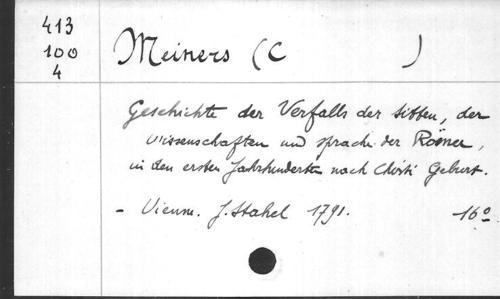 413
100
4
Meiners (C )
Geschichte der Verfalls der sitten, der
Wissenschaften und sprache der Römer,
in den ersten Jahrhunderten nach Christi Geburt.
- Vienne. J. Stahel 1791. 16°